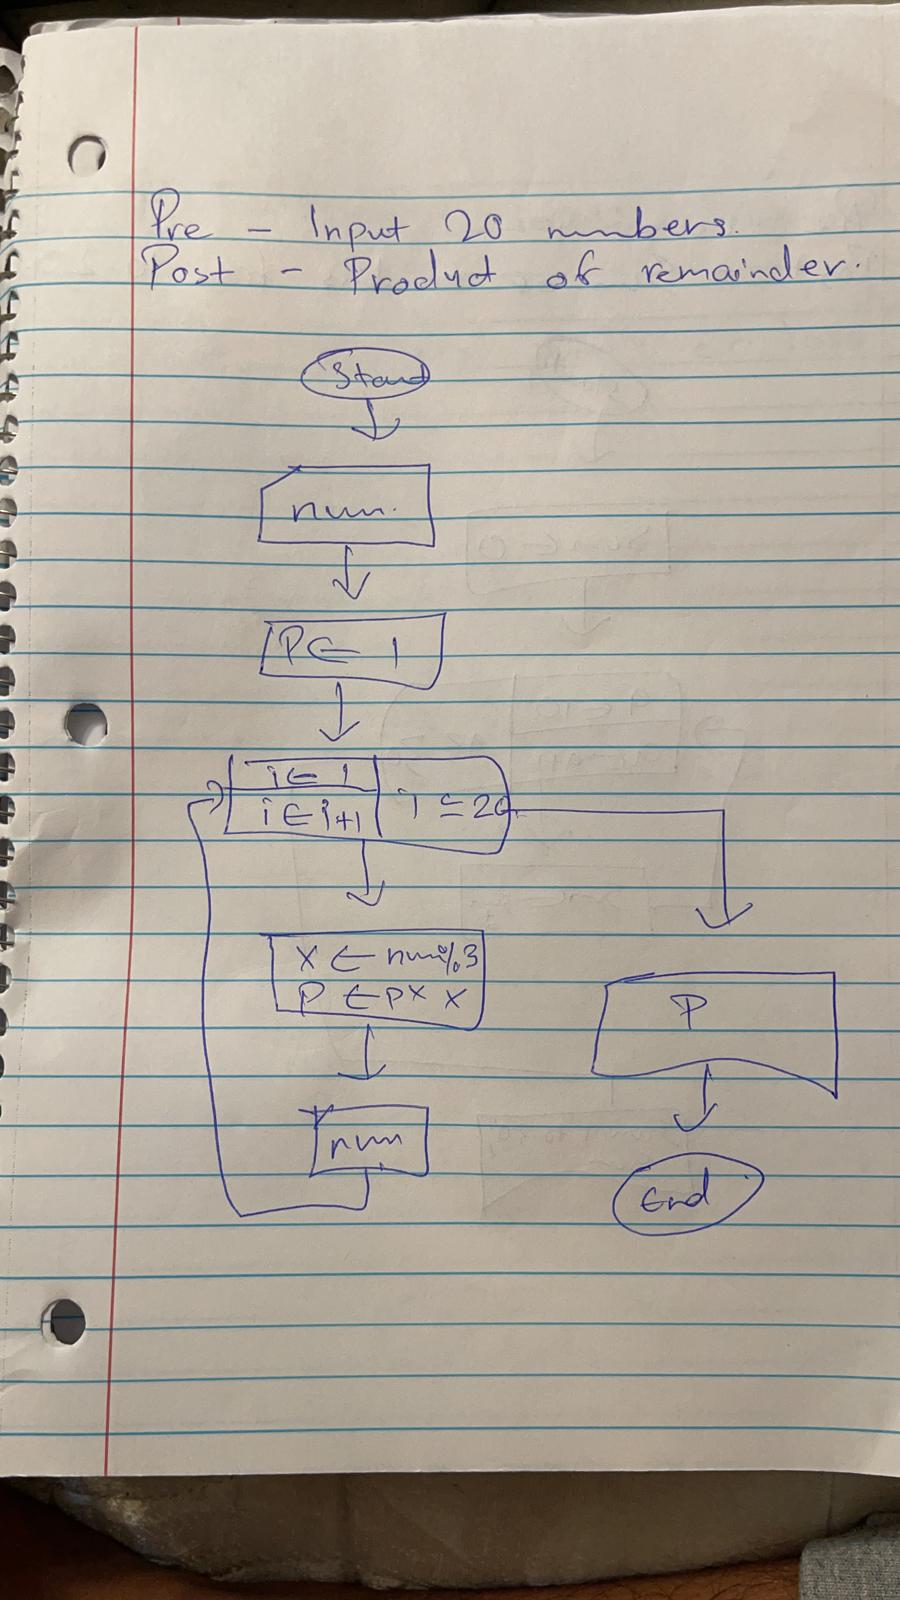 Pre - Input 20 numbers.
Post - Product of remainder.
Start
num.
P ← 1
i ← 1
i ← i+1
i ≤ 20
x ← num%3
P ← P × x
num
P
End